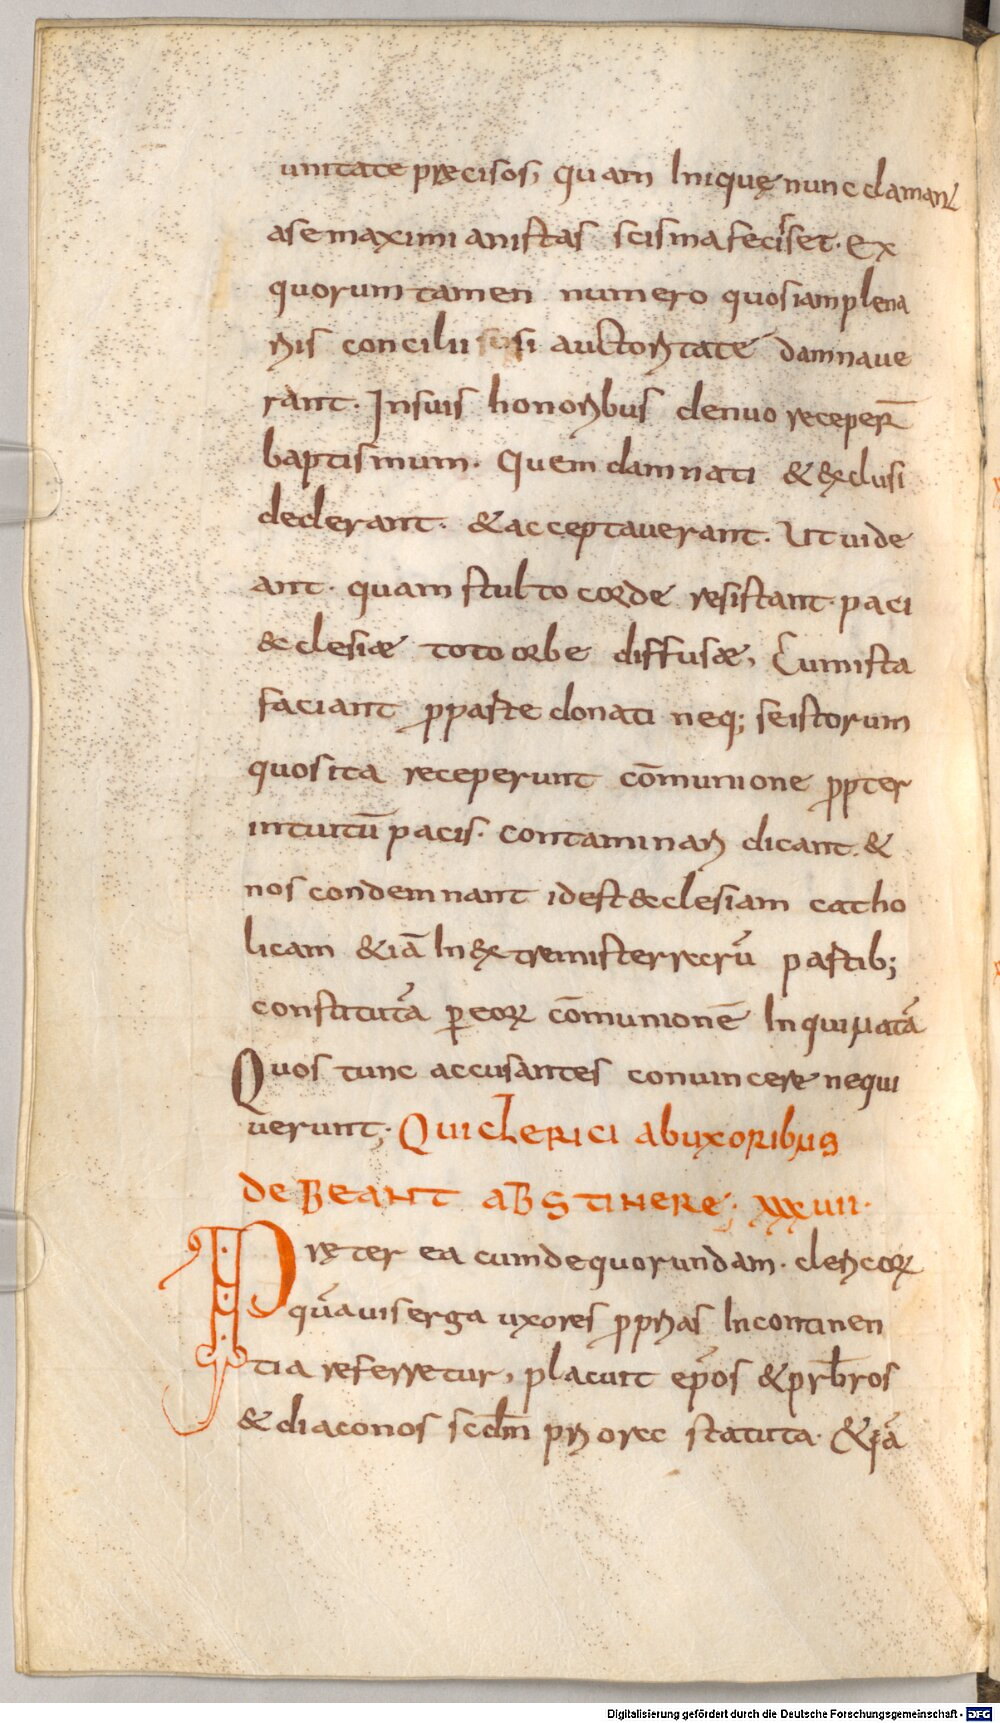 unitate pręcisos, quam Inique nunc clamant
ase maximi anistas scisma fecisset. Ex
quorum tamen numero quos iam plena
riis concilii sui si auctoritate damnaue
rant. Insuis honoribus denuo receper̄
baptismum. Quem damnati & exclusi
dederant. & acceptauerant. Ut uide
ant. quam stulto corde resistant. paci
&clesiæ toto orbe diffusæ, Cum ista
faciant ꝓparte donati neq; se istorum
quos ita receperunt cōmunione ꝓpter
intuitū pacis. contaminari dicant. &
nos condemnant id est &clesiam catho
licam &iā In extremis terrerū partib;
constitutā ꝑ eoꝝ cōmunionē Inquinatā
Quos tunc accusantes conuincere nequi
uerunt; Qui clerici ab uxoribus
debeant abstinere; xxxvii.
Pręter ea cum de quorundam. clericoꝝ
quāuis erga uxores ꝓprias Incontinen
tia referretur, placuit ep̄os & prb̄ros
& diaconos scd̄m priores statuta. &iā